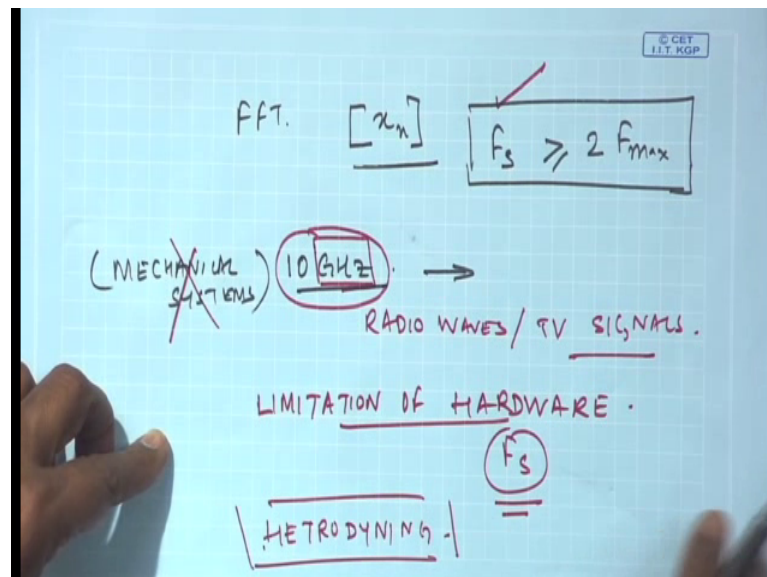 © CET
I.I.T. KGP
FFT. [xₙ] Fs ⩾ 2 Fmax
(MECHANICAL SYSTEMS) 10 GHZ. →
RADIO WAVES / TV SIGNALS.
LIMITATION OF HARDWARE.
Fs
HETRODYNING.